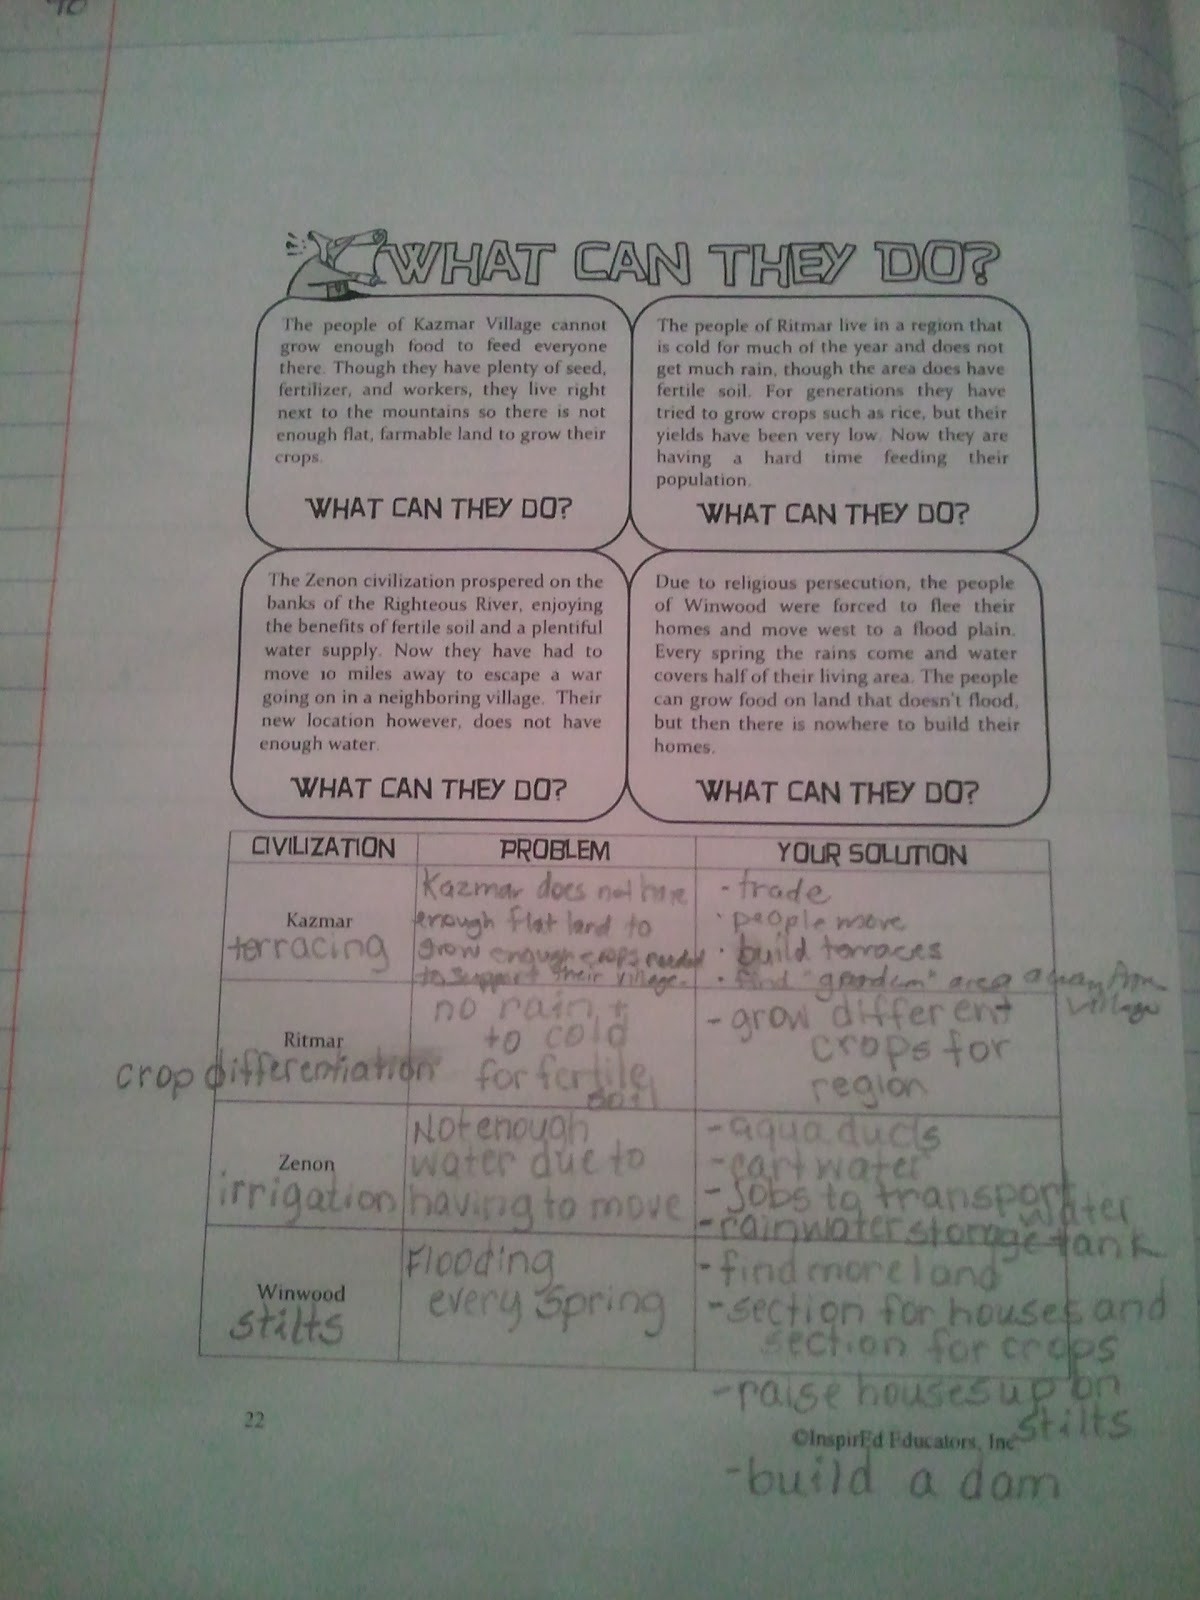 WHAT CAN THEY DO?
The people of Kazmar Village cannot
grow enough food to feed everyone
there. Though they have plenty of seed,
fertilizer, and workers, they live right
next to the mountains so there is not
enough flat, farmable land to grow their
crops.
WHAT CAN THEY DO?
The people of Ritmar live in a region that
is cold for much of the year and does not
get much rain, though the area does have
fertile soil. For generations they have
tried to grow crops such as rice, but their
yields have been very low. Now they are
having a hard time feeding their
population.
WHAT CAN THEY DO?
The Zenon civilization prospered on the
banks of the Righteous River, enjoying
the benefits of fertile soil and a plentiful
water supply. Now they have had to
move 10 miles away to escape a war
going on in a neighboring village. Their
new location however, does not have
enough water.
WHAT CAN THEY DO?
Due to religious persecution, the people
of Winwood were forced to flee their
homes and move west to a flood plain.
Every spring the rains come and water
covers half of their living area. The people
can grow food on land that doesn't flood,
but then there is nowhere to build their
homes.
WHAT CAN THEY DO?
CIVILIZATION PROBLEM YOUR SOLUTION
Kazmar
terracing
Kazmar does not have
enough flat land to
grow enough crops needed
to support their village.
- trade
· people move
· build terraces
· find area away from
village
Ritmar
crop differentiation
no rain +
to cold
for fertile
soil
- grow different
crops for
region
Zenon
irrigation
Not enough
water due to
having to move
- aquaducts
- cart water
- Jobs to transport
water
- rainwater storage tank
Winwood
stilts
Flooding
every Spring
- find more land
- section for houses and
section for crops
- raise houses up on
stilts
- build a dam
22
©InspirEd Educators, Inc